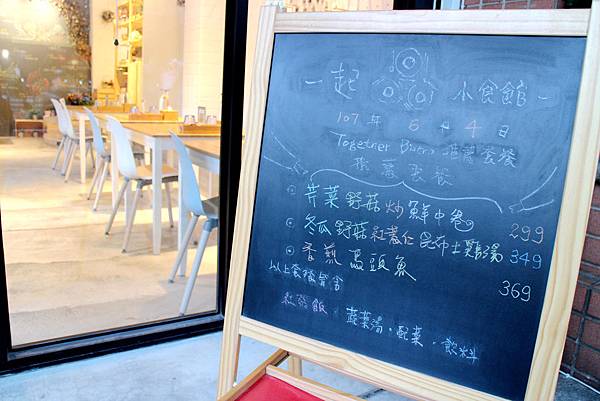 一起 小食館
107年 5月 4日
Together Burn 推薦套餐
推薦套餐
芹菜野菇炒鮮中卷 299
冬瓜野菇紅薏仁昆布土雞湯 349
香煎馬頭魚 369
以上套餐皆含
紅藜飯、蔬菜湯、配菜、飲料